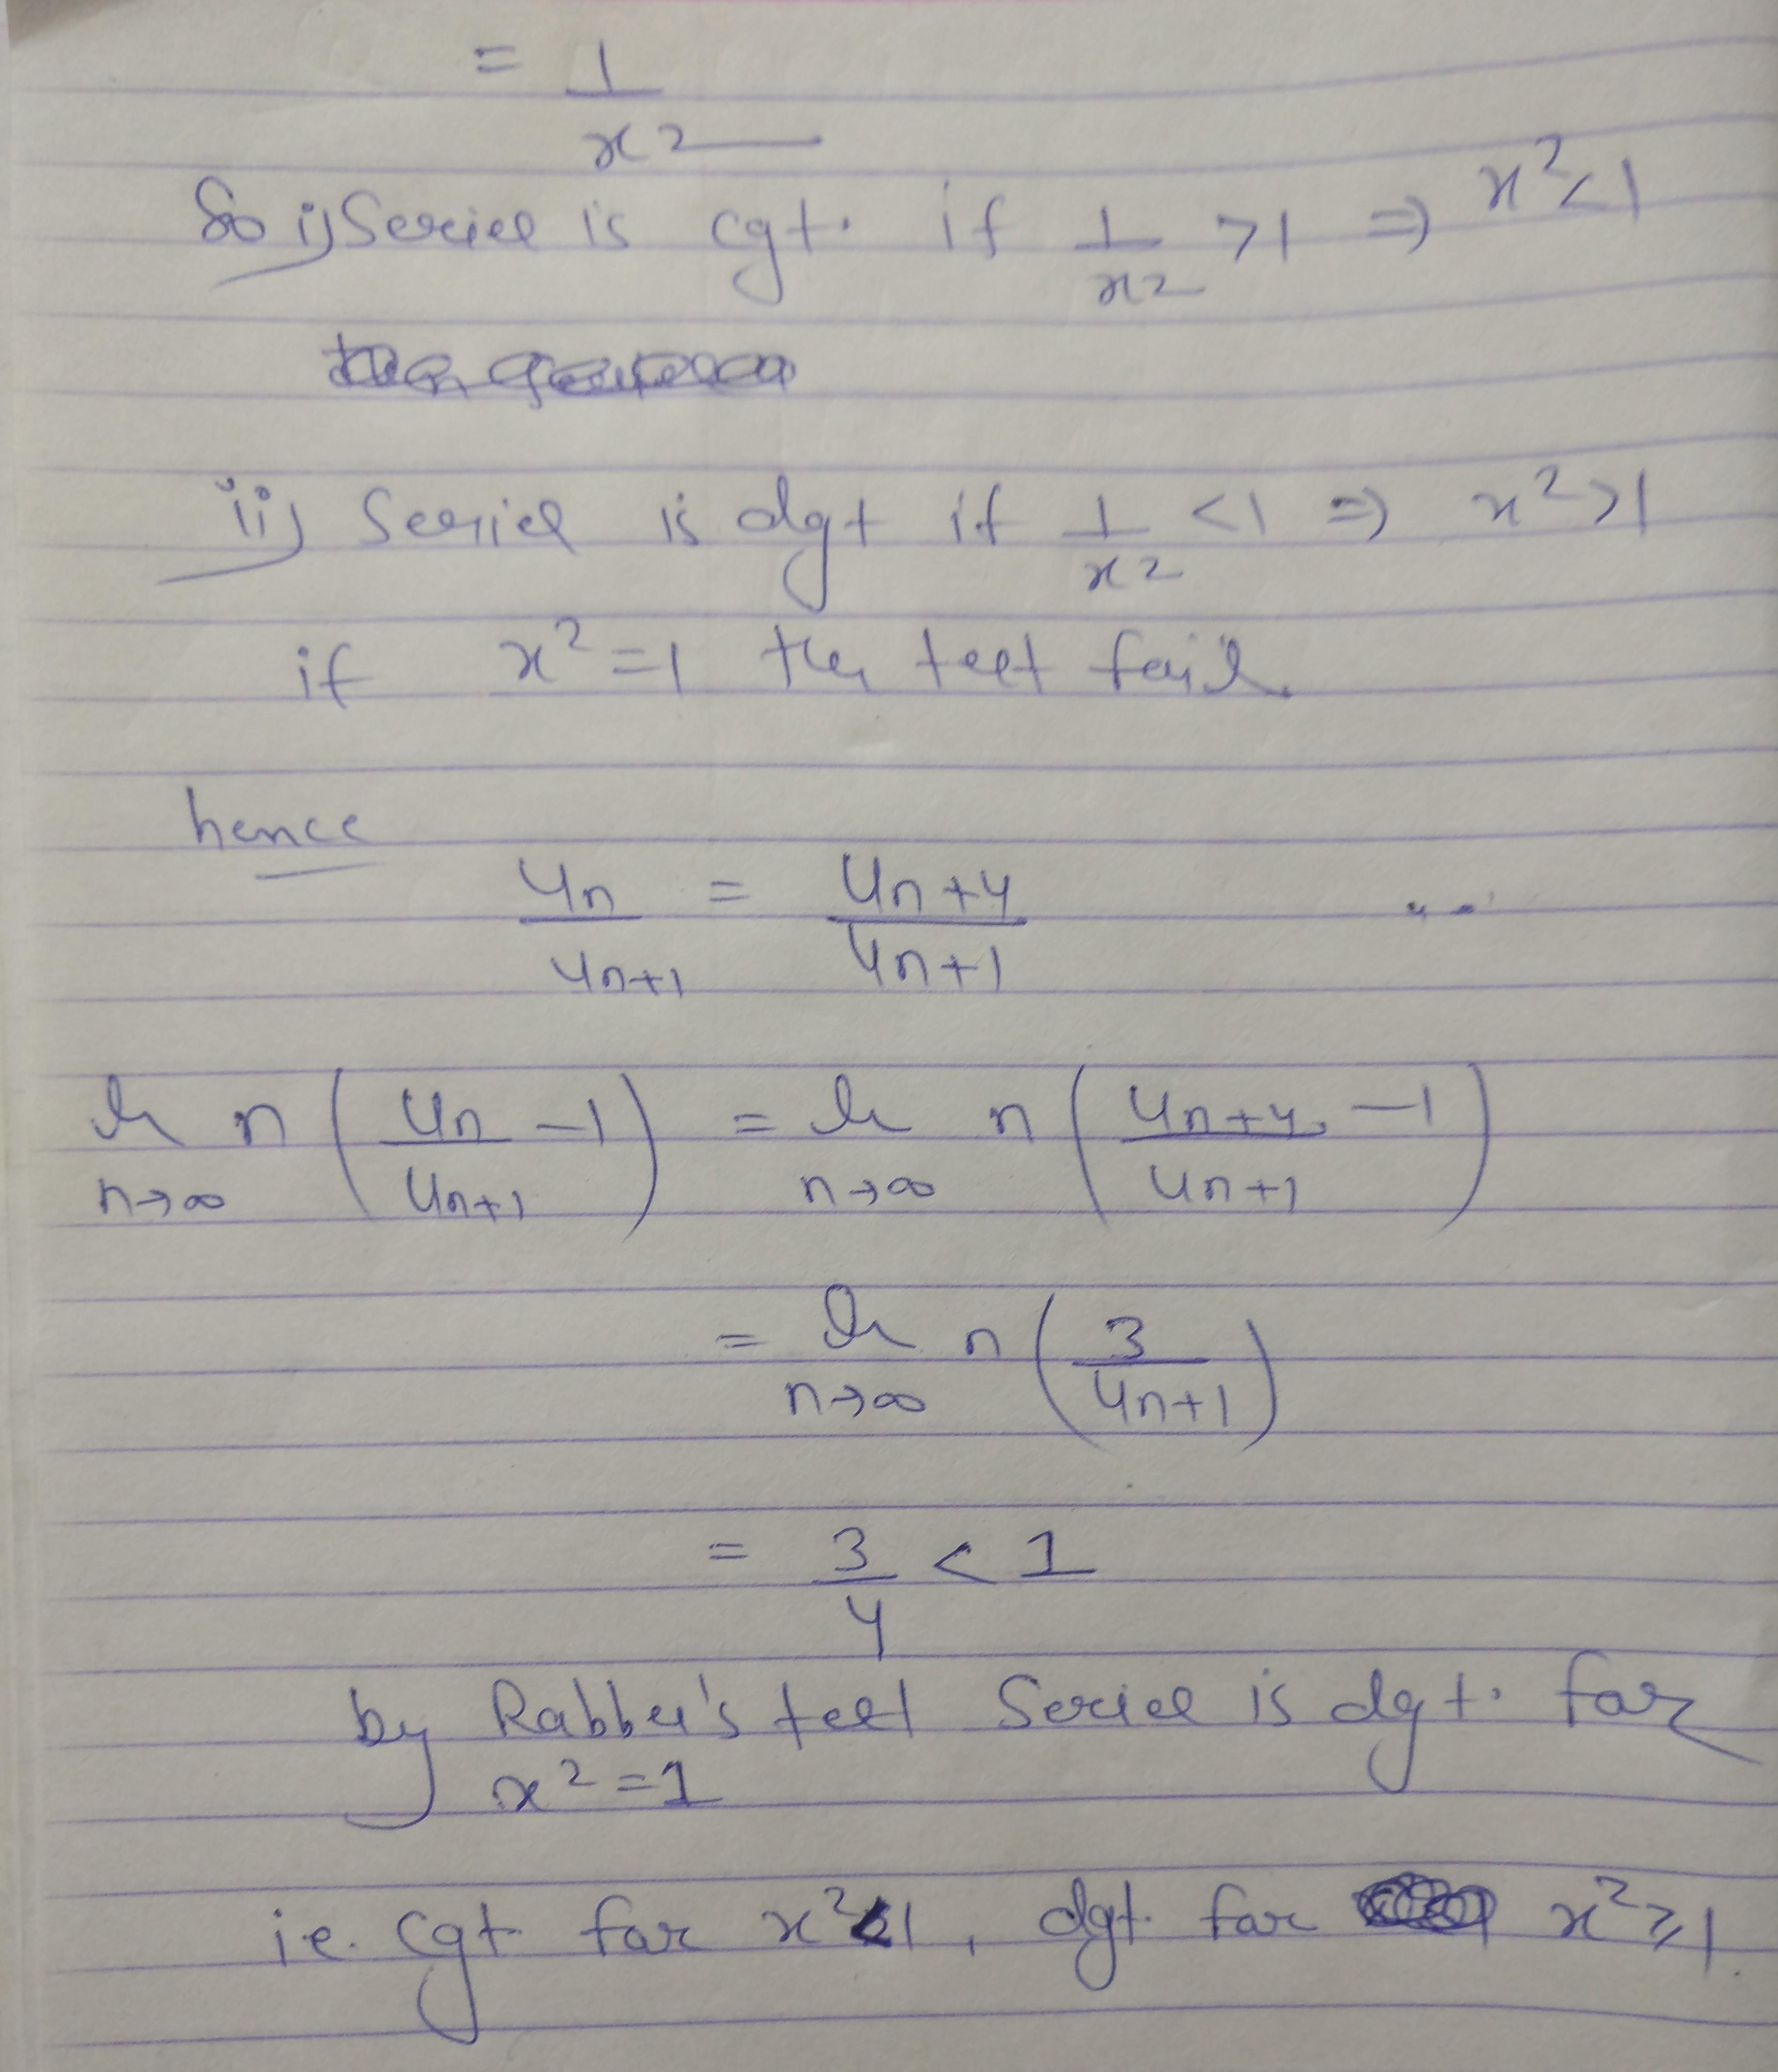 = 1
x2
So i) Series is cgt. if 1/x2 >1 ⇒ x²<1
ii) Series is dgt if 1/x2 <1 ⇒ x²>1
if x²=1 the test fail.
hence
un/un+1 = 4n+4/4n+1
lt n→∞ n(un/un+1 -1) = lt n→∞ n(4n+4/4n+1 -1)
= lt n→∞ n(3/4n+1)
= 3/4 < 1
by Rabbe's test Series is dgt. for
x²=1
i.e. cgt for x²<1, dgt. for x²≥1.